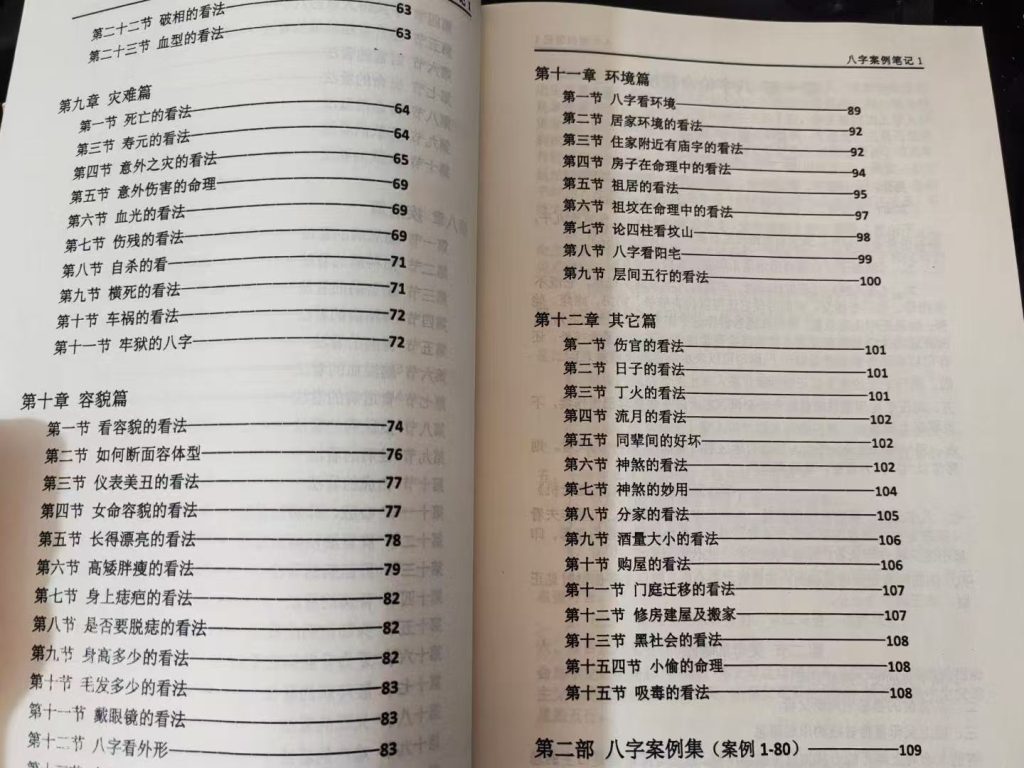 第二十二节 破相的看法 63
第二十三节 血型的看法 63
第九章 灾难篇
第一节 死亡的看法 64
第三节 寿元的看法 64
第四节 意外之灾的看法 65
第五节 意外伤害的命理 69
第六节 血光的看法 69
第七节 伤残的看法 69
第八节 自杀的看 71
第九节 横死的看法 71
第十节 车祸的看法 72
第十一节 牢狱的八字 72
第十章 容貌篇
第一节 看容貌的看法 74
第二节 如何断面容体型 76
第三节 仪表美丑的看法 77
第四节 女命容貌的看法 77
第五节 长得漂亮的看法 78
第六节 高矮胖瘦的看法 79
第七节 身上痣疤的看法 82
第八节 是否要脱痣的看法 82
第九节 身高多少的看法 82
第十节 毛发多少的看法 83
第十一节 戴眼镜的看法 83
第十二节 八字看外形 83
八字案例笔记 1
第十一章 环境篇
第一节 八字看环境 89
第二节 居家环境的看法 92
第三节 住家附近有庙宇的看法 92
第四节 房子在命理中的看法 94
第五节 祖居的看法 95
第六节 祖坟在命理中的看法 97
第七节 论四柱看坟山 98
第八节 八字看阳宅 99
第九节 层间五行的看法 100
第十二章 其它篇
第一节 伤官的看法 101
第二节 日子的看法 101
第三节 丁火的看法 101
第四节 流月的看法 102
第五节 同辈间的好坏 102
第六节 神煞的看法 102
第七节 神煞的妙用 104
第八节 分家的看法 105
第九节 酒量大小的看法 106
第十节 购屋的看法 106
第十一节 门庭迁移的看法 107
第十二节 修房建屋及搬家 107
第十三节 黑社会的看法 108
第十五四节 小偷的命理 108
第十五节 吸毒的看法 108
第二部 八字案例集（案例 1-80） 109